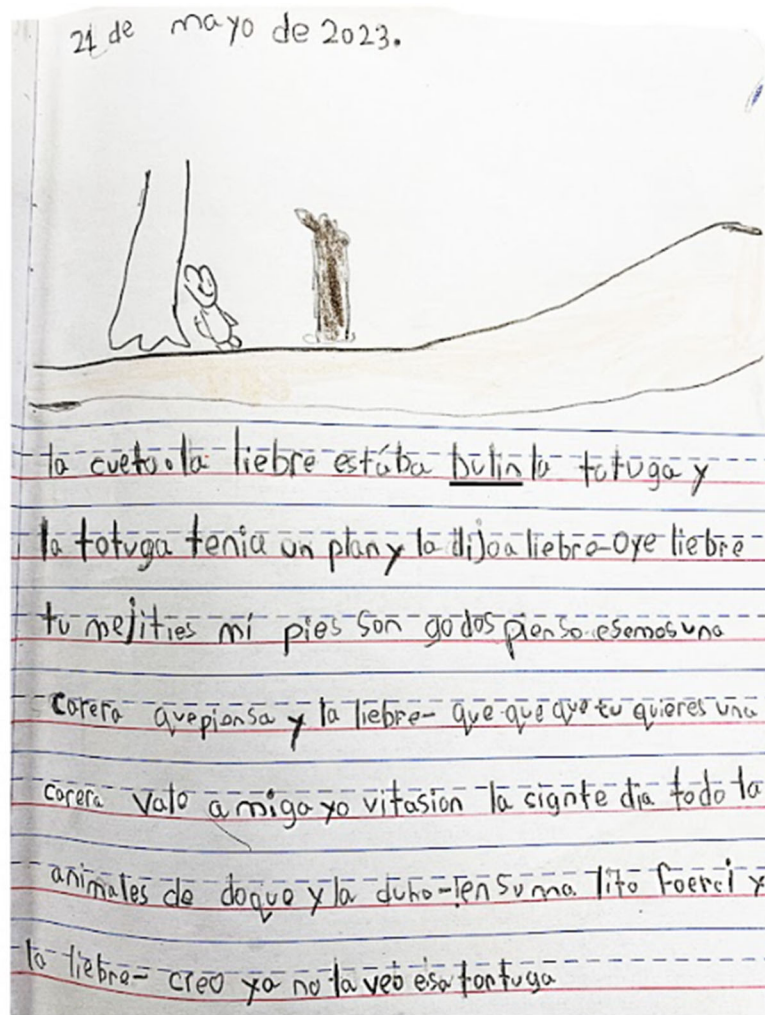 21 de mayo de 2023.
la cueto. la liebre estaba bulin la totuga y
la totuga tenia un plan y la dijo a liebre-oye liebre
tu mejities mi pies son godos pienso esemos una
carera que piensa y la liebre- que que que tu quieres una
carera valo amiga yo vitasion la signte dia todo la
animales de doque y la duho-ien su ma lito foerci y
la liebre- creo ya no la veo esa tortuga